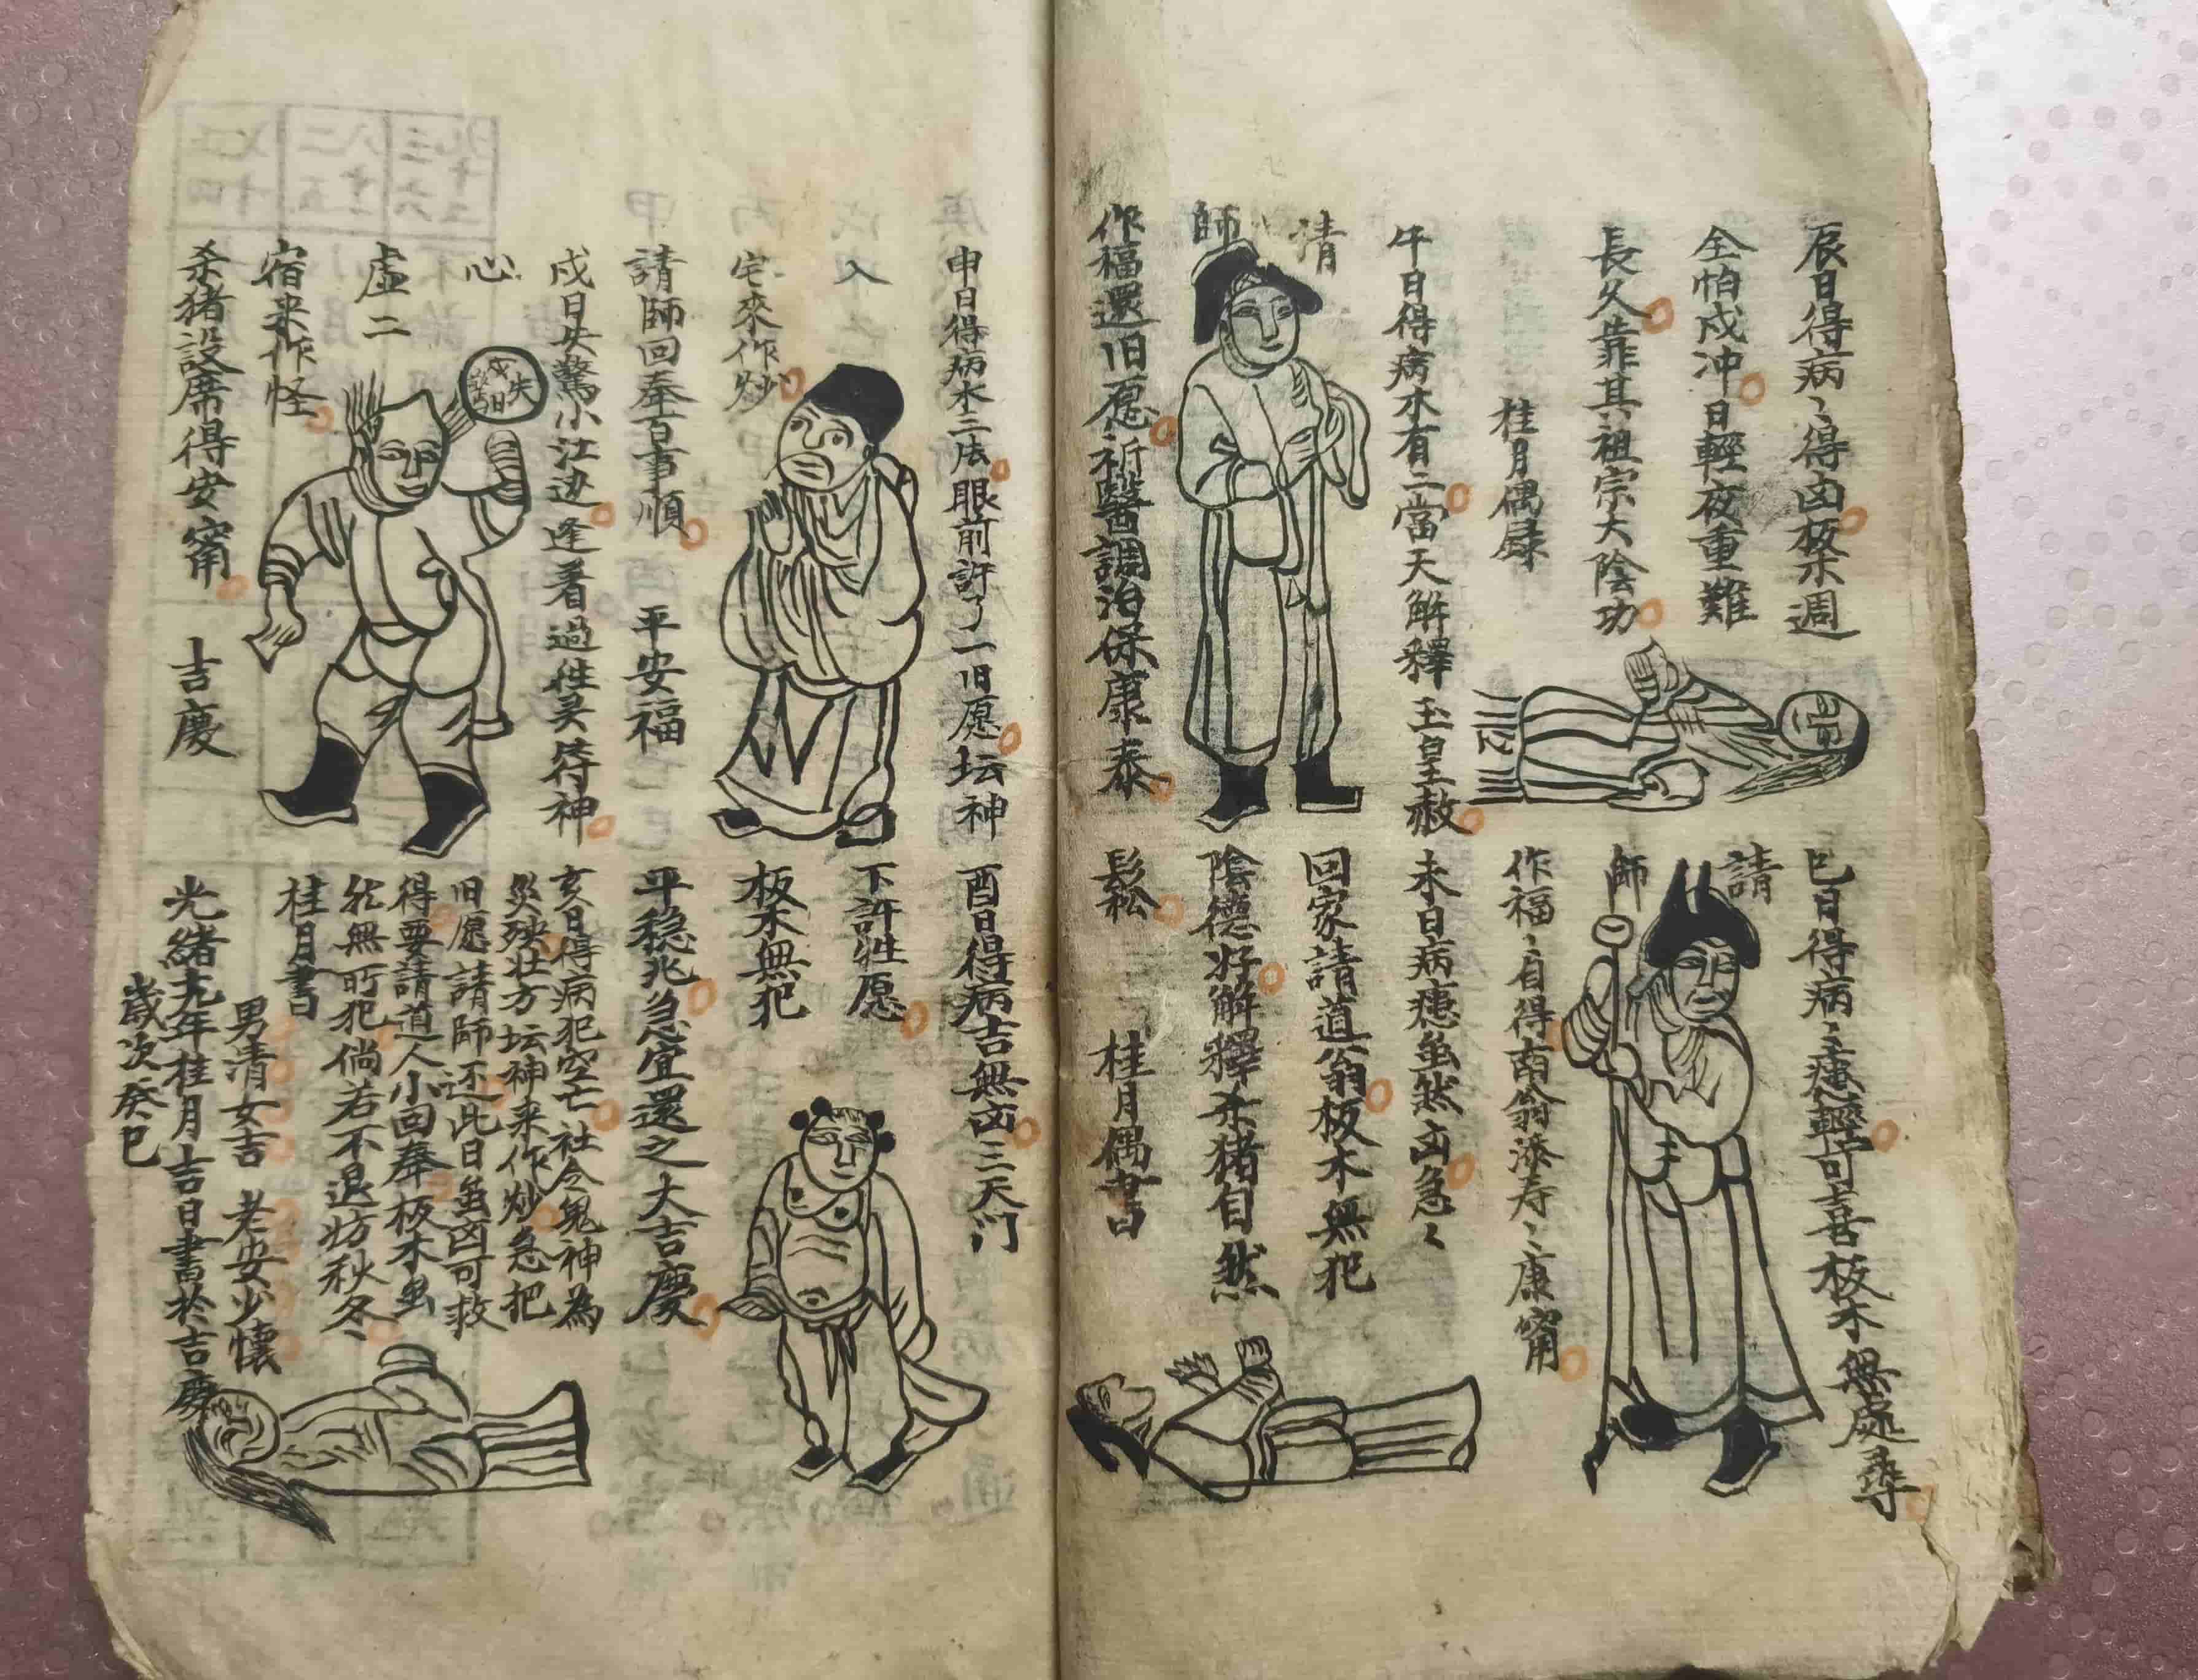 辰日得病〻得凶板木週
全怕戍冲日輕夜重難
長久靠其祖宗大陰功
桂月偶録
巳日得病〻〻痊輕可喜板木無處尋
請
師
作福〻自得南翁添寿〻康甯
午日得病木有二當天解釋玉皇赦
請
師
作福還旧愿祈醫調治保康泰
未日病痊虽然凶急〻
回家請道翁板木無犯
陰德好解釋杀猪自然
鬆
桂月偶書
申日得病木三法眼前許了一旧愿坛神
入
宅來作炒
請師回奉百事順
平安福
酉日得病吉無凶三天门
下許牲愿
板木無犯
平稳兆急宜還之大吉慶
戍日失驚小江边逢着過往吴侍神
心
虚二
宿来作怪
杀猪設席得安甯
吉慶
戍日失驚
亥日得病犯空亡社令鬼神為
災殃壮方坛神来作炒急把
旧愿請師还此日虽凶可救
得要請道人小回奉板木虽
然無所犯倘若不退妨秋冬〻
桂月書
男清女吉 老安少懷
光緒九年桂月吉日書於吉慶
歲次癸巳